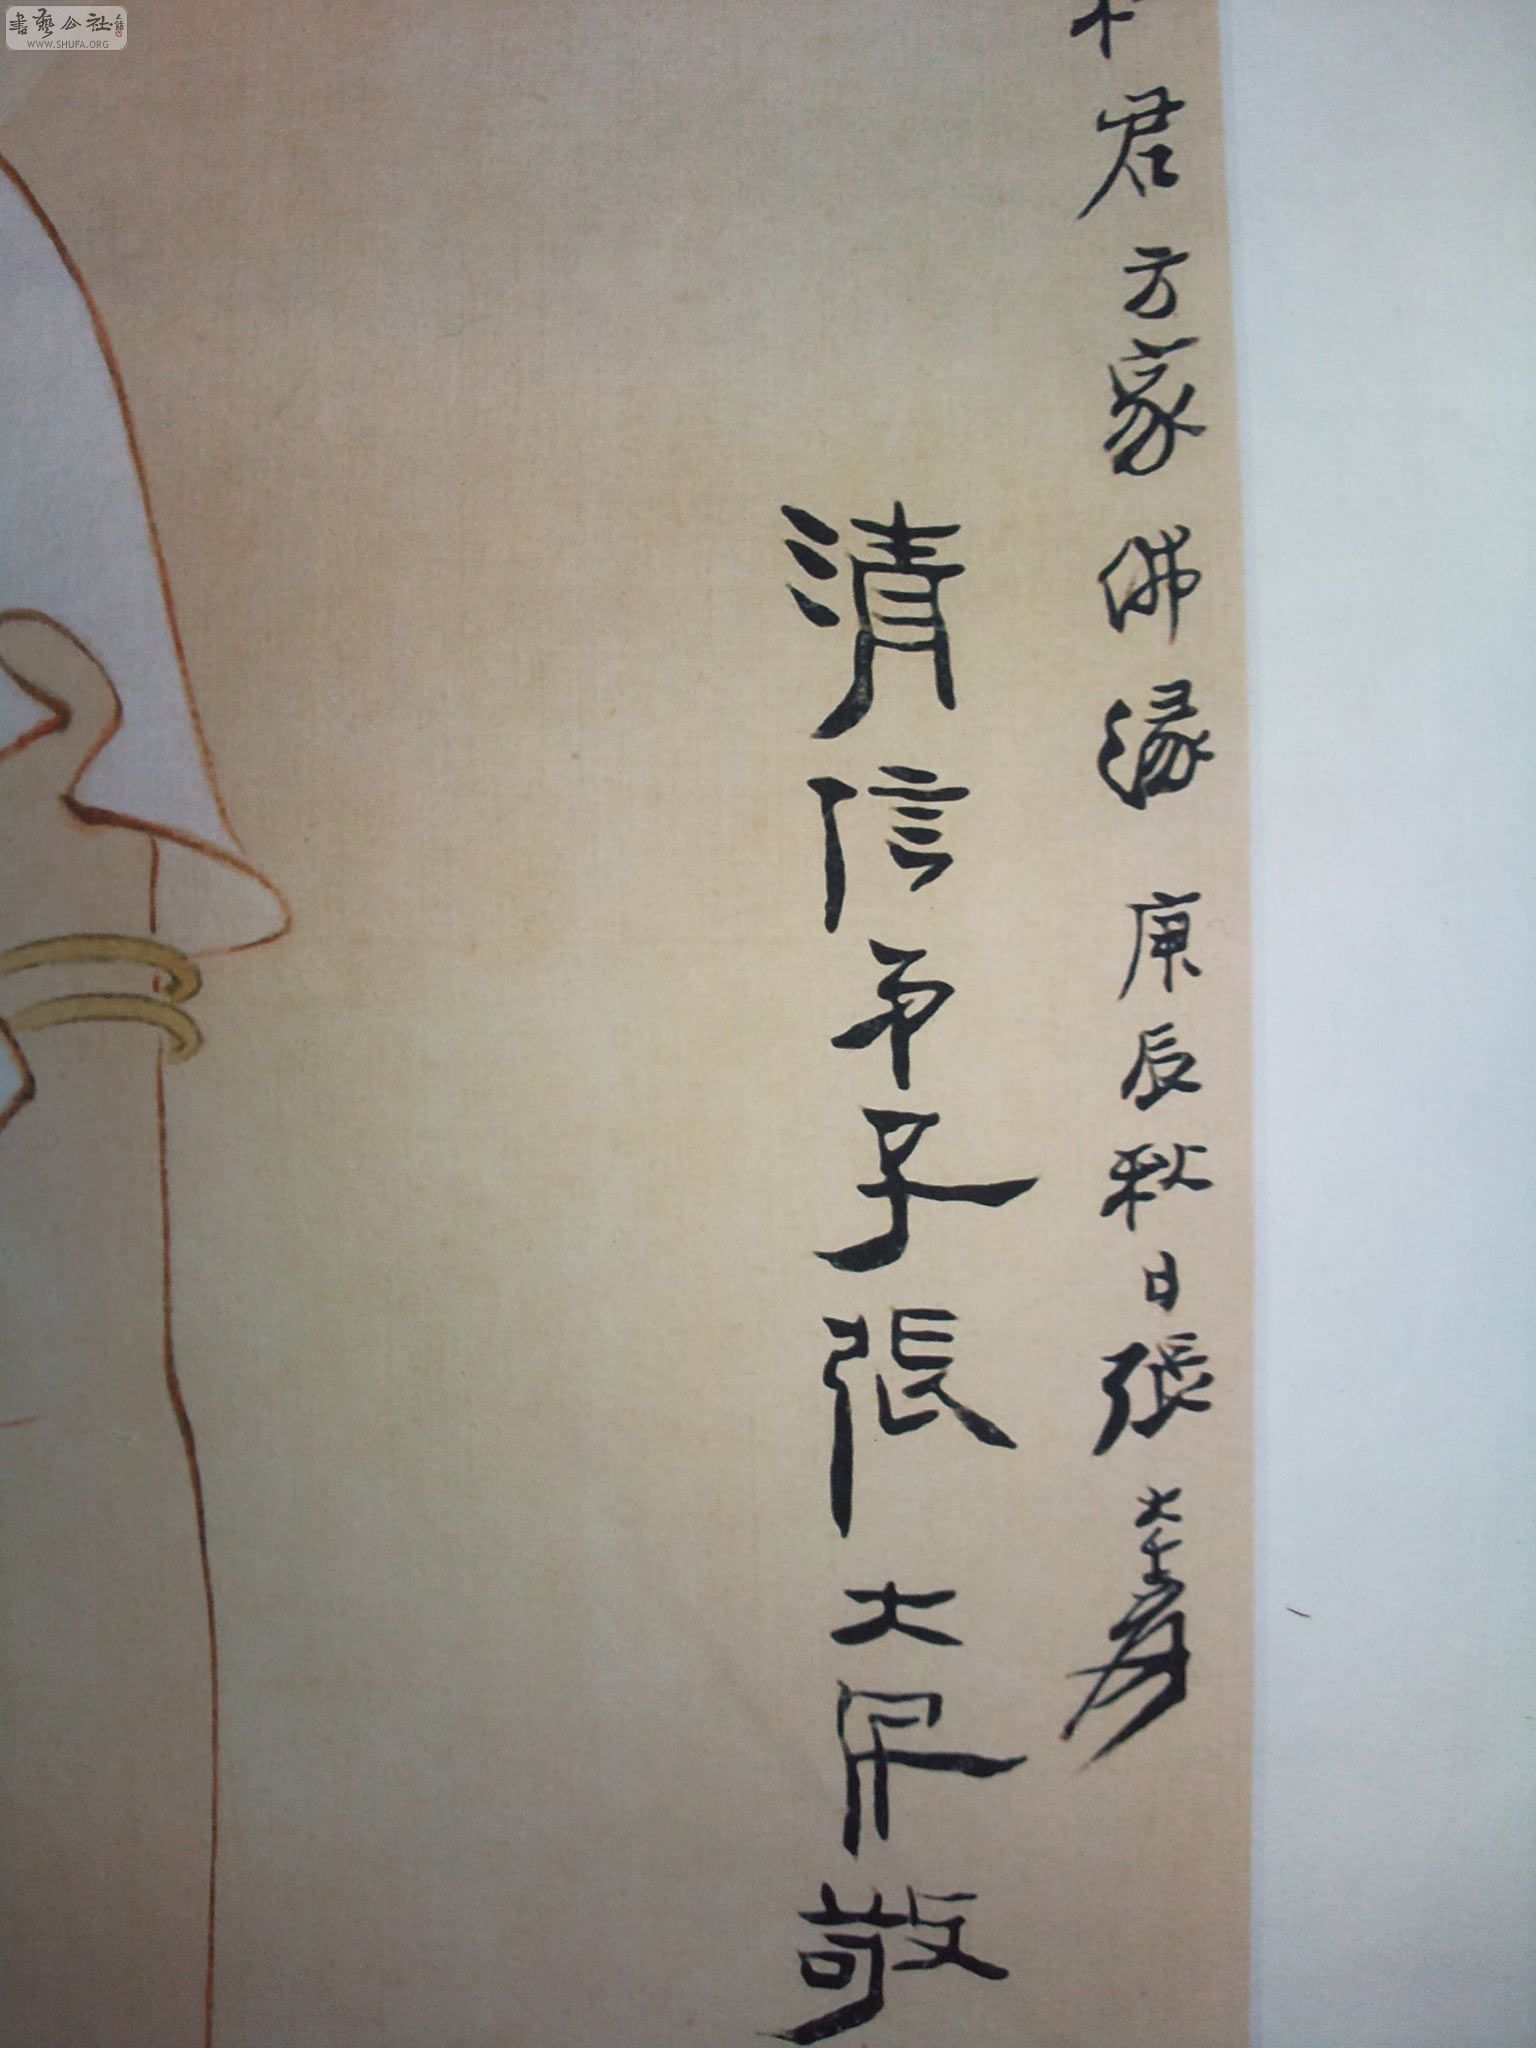 書藝公社
WWW.SHUFA.ORG
君方家佛緣庚辰秋日張大千爰
清信弟子張大千敬